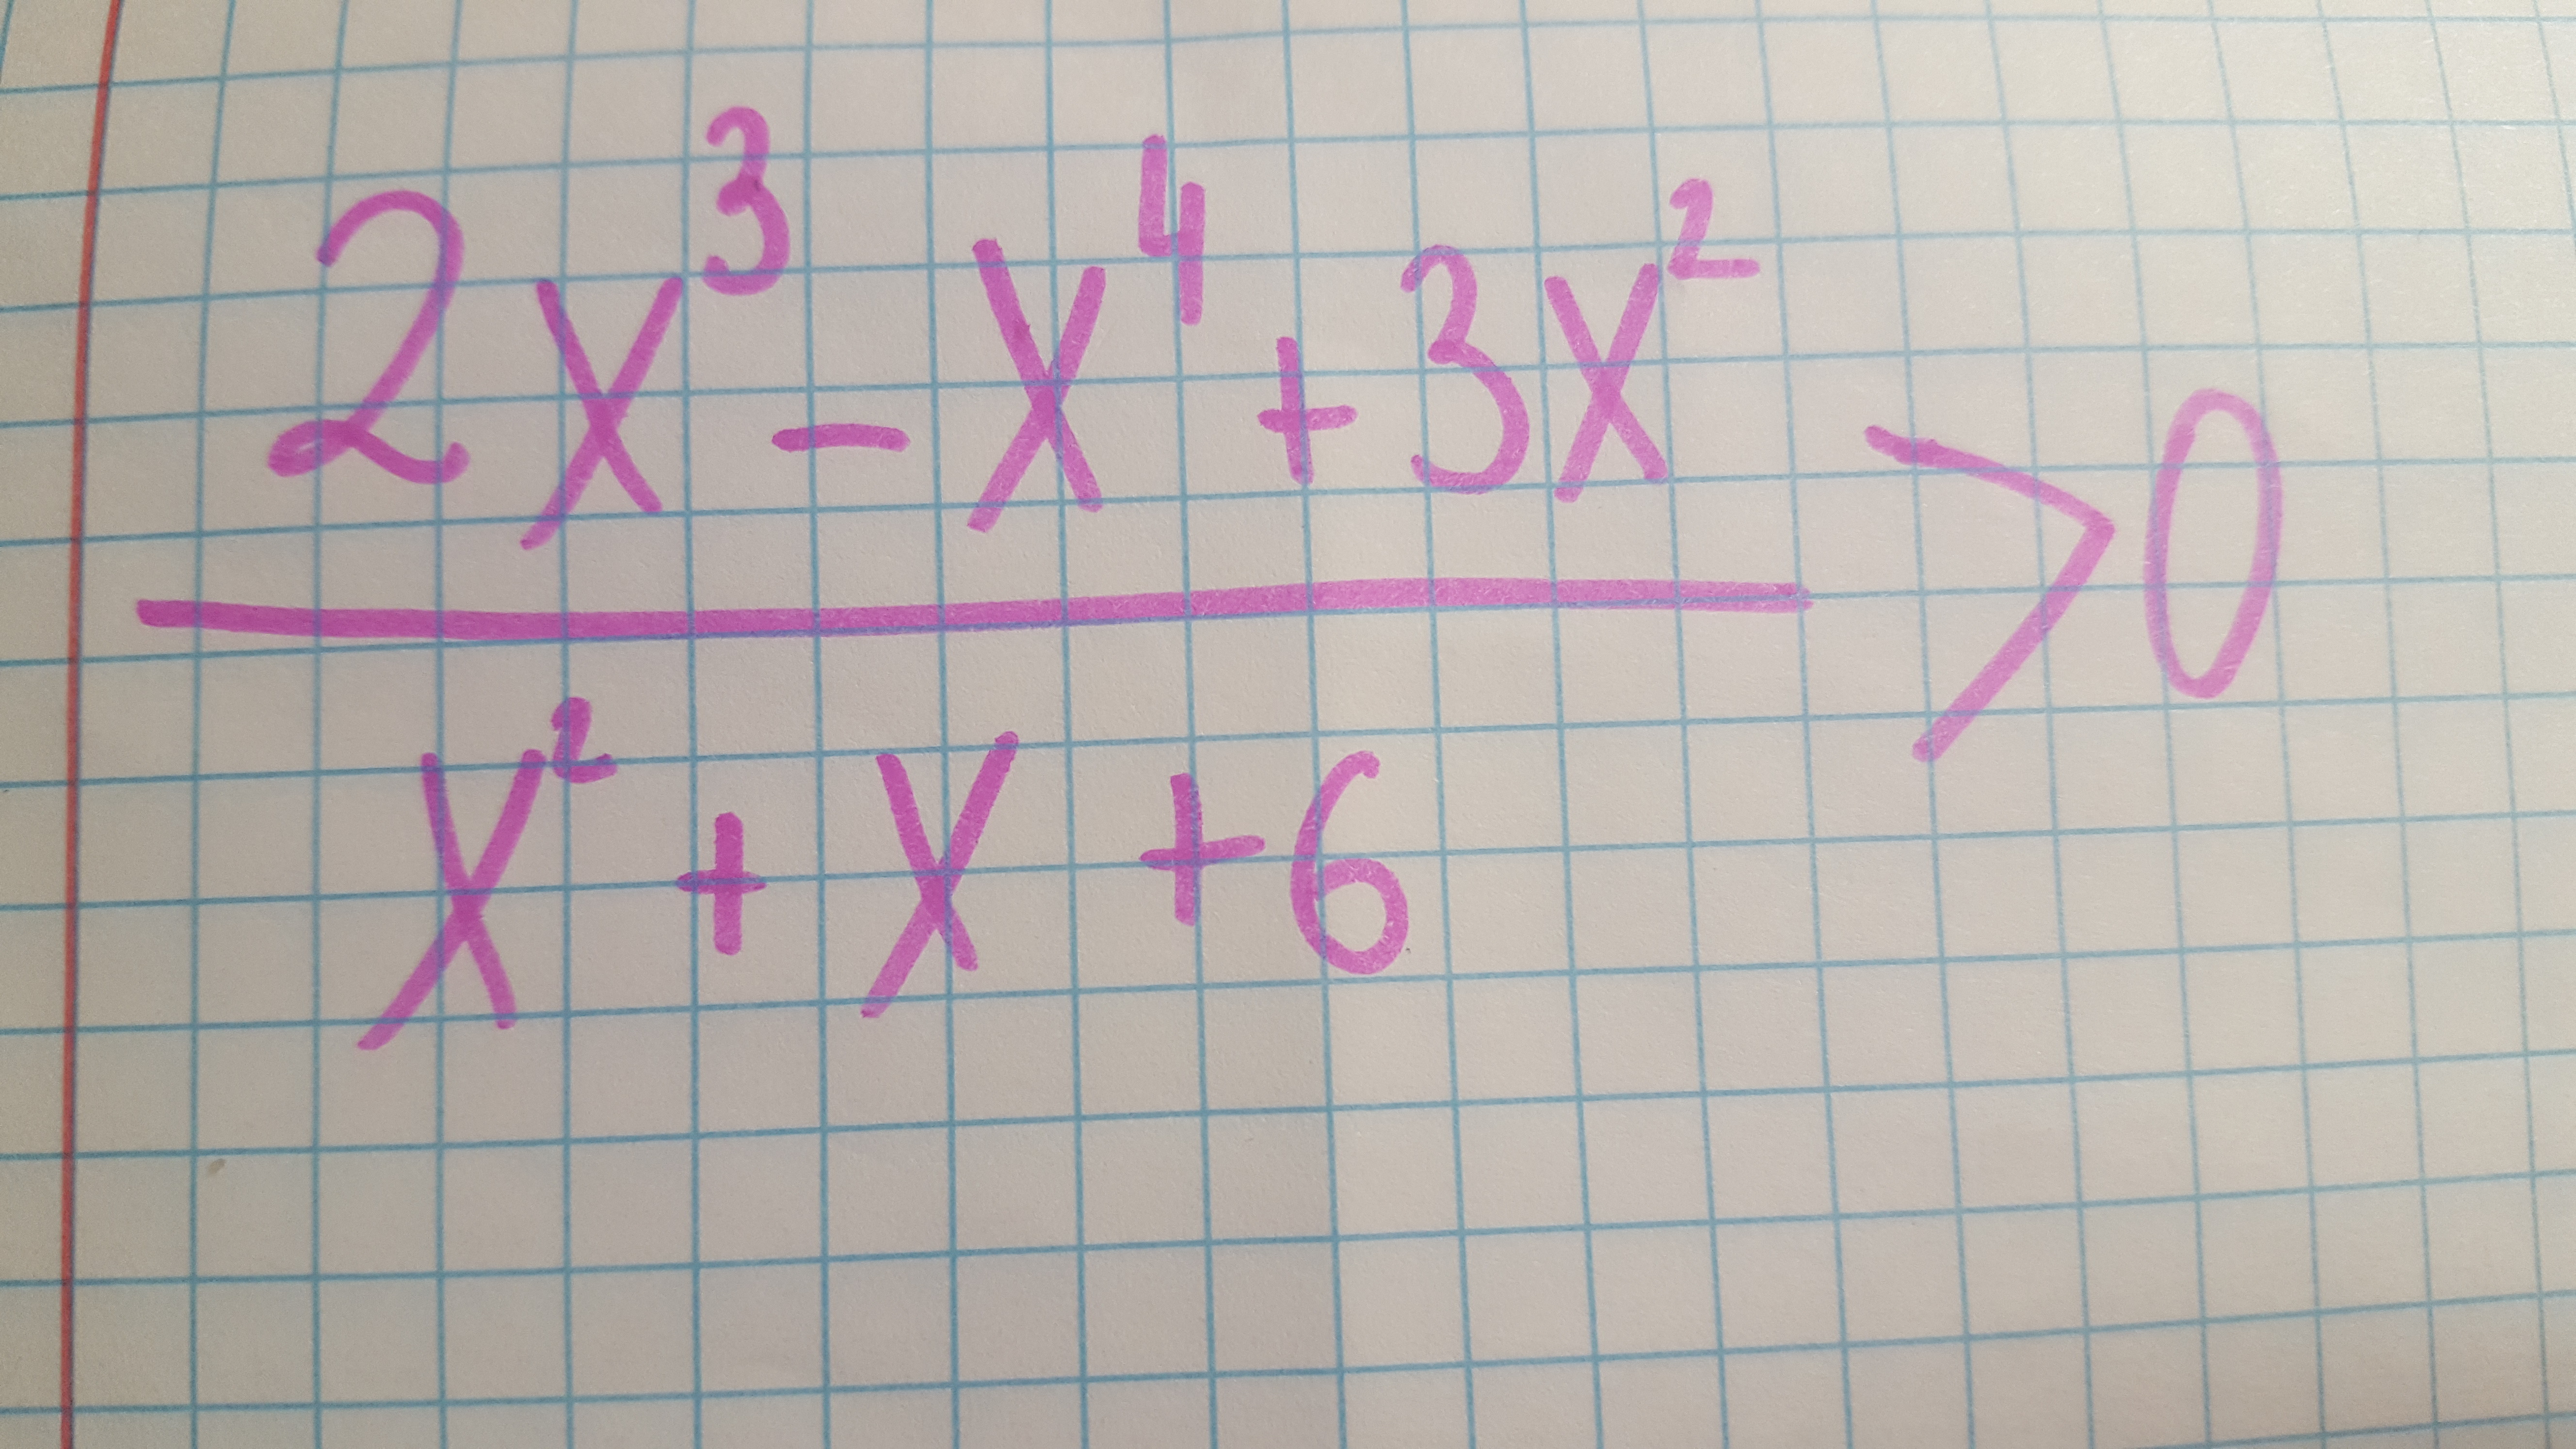 2x³ - x⁴ + 3x² > 0
x² + x + 6